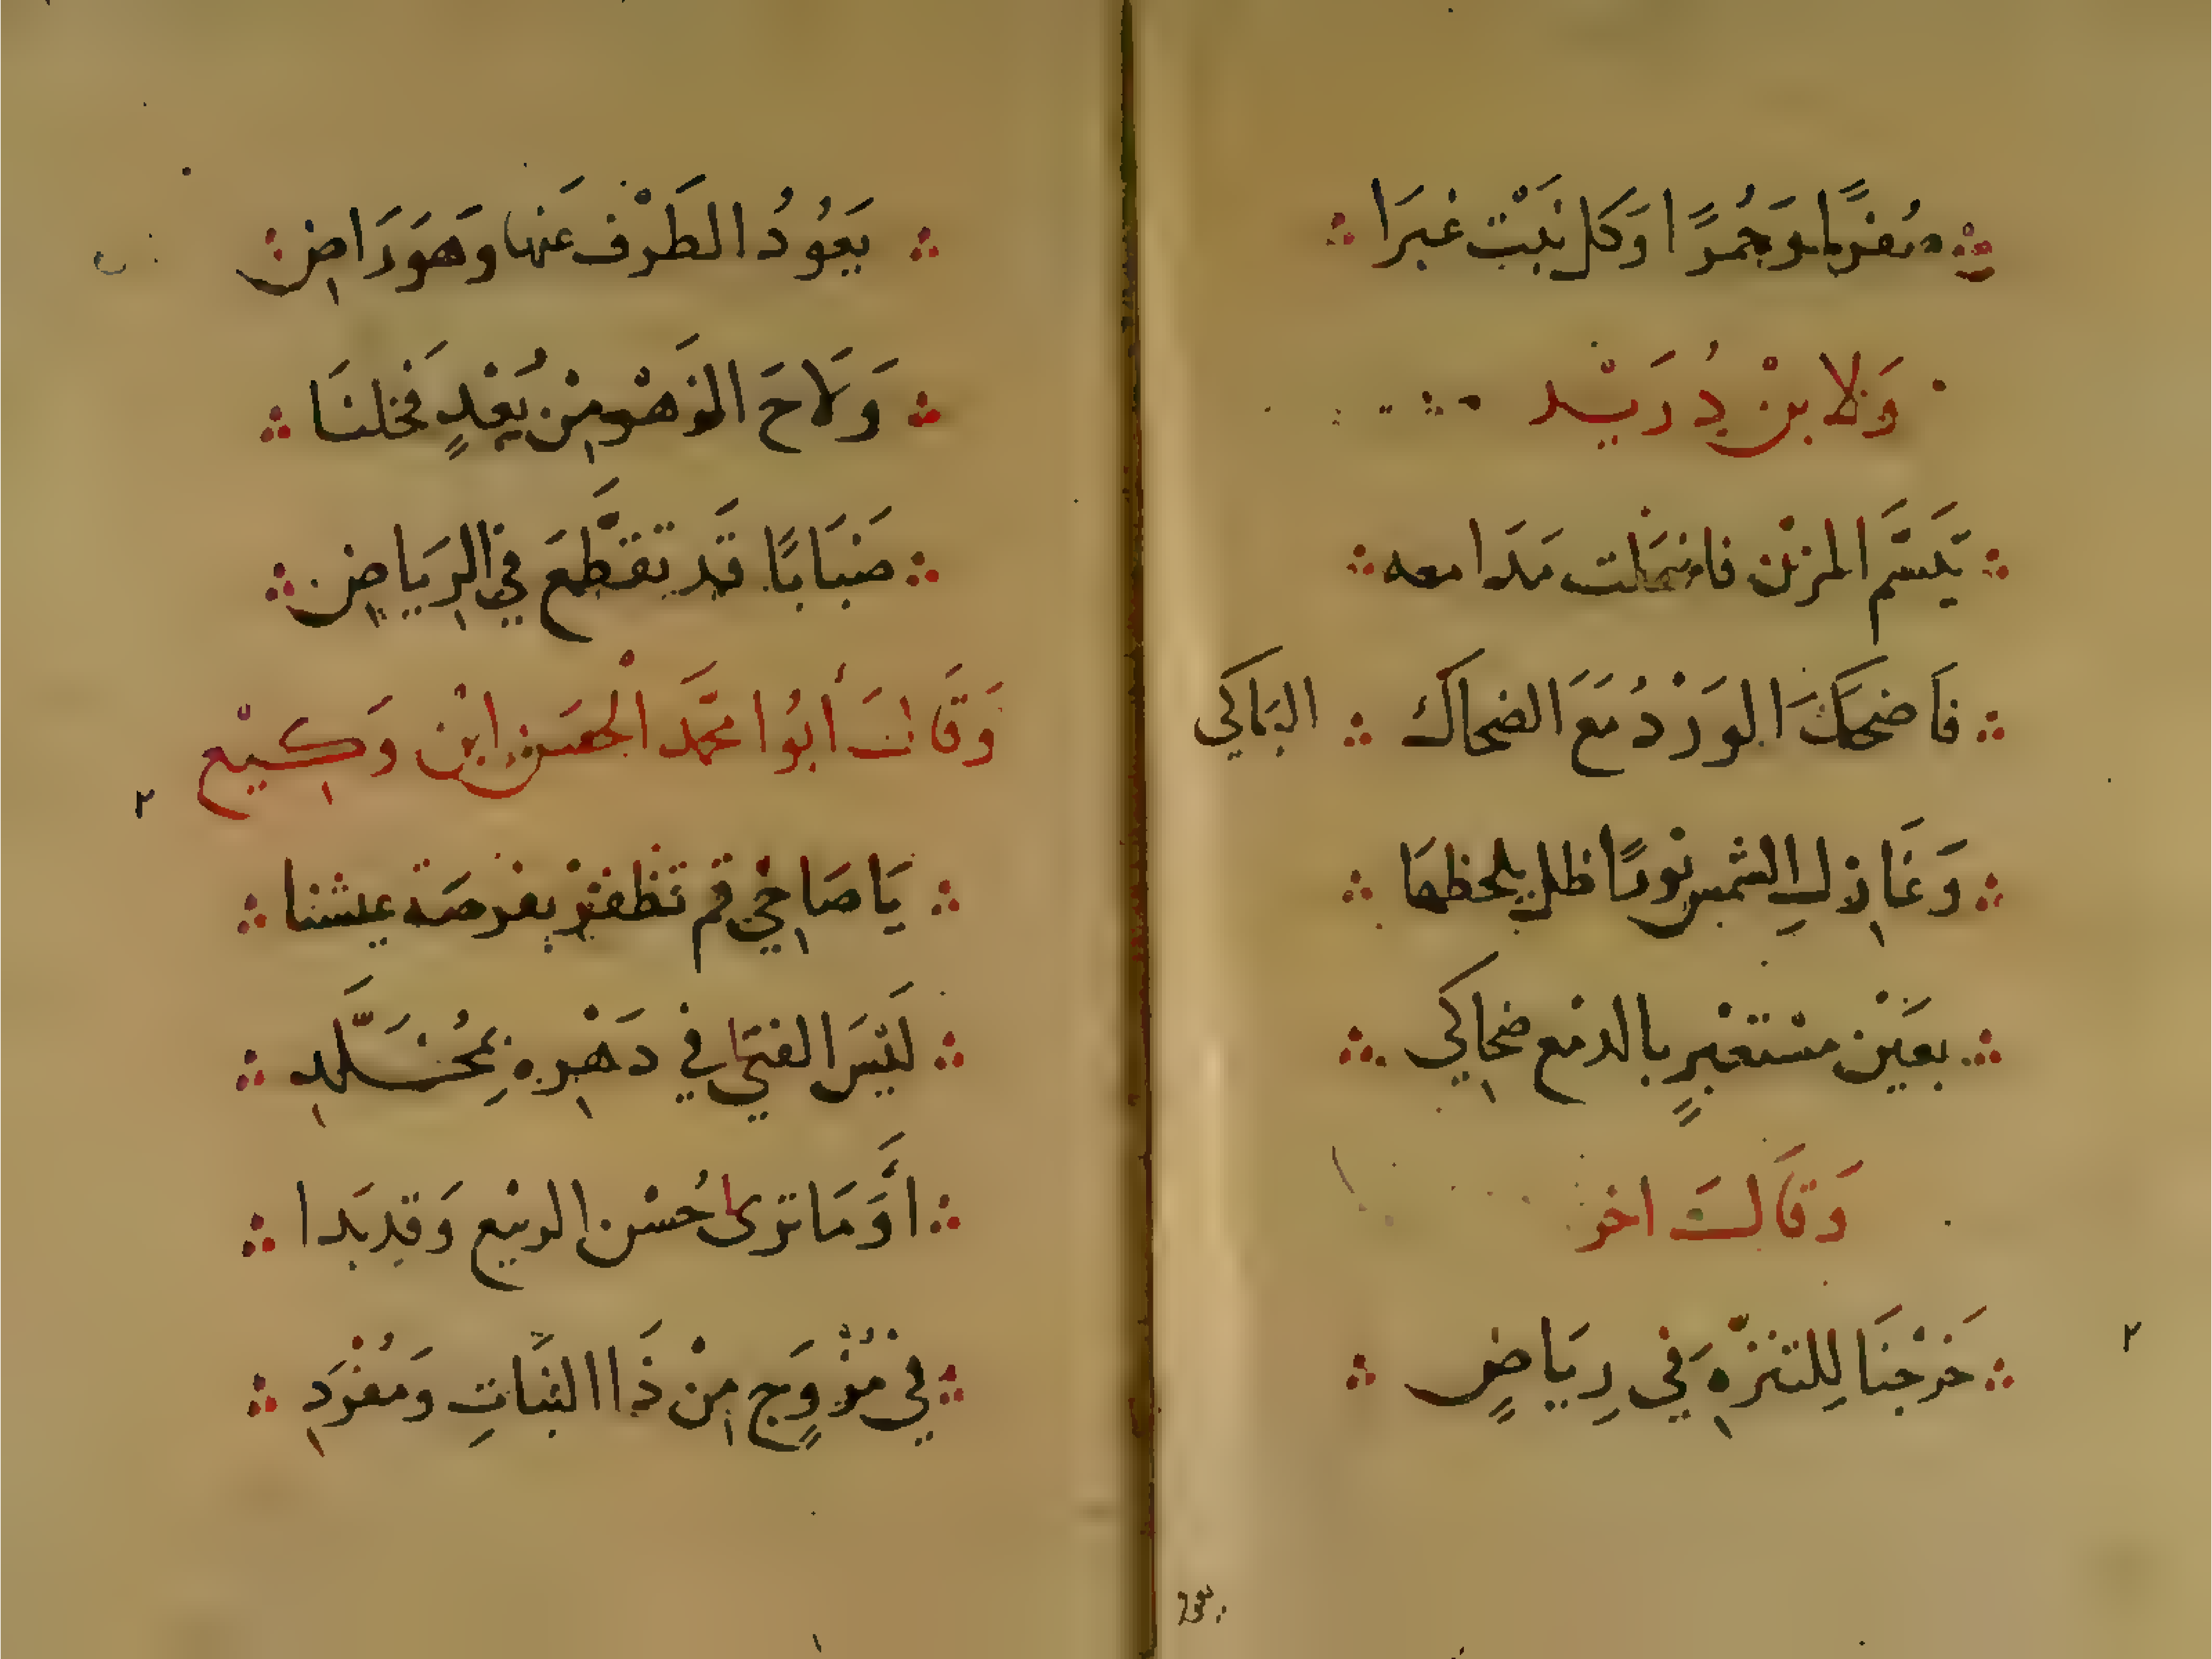 صُفرًا وَحُمرًا وَكل نَبْت غبرَا
وَلابنْ دُرَيْد
تَبَسَّمَ المزنْ فانهَملت مَدَامعه
فَاضحَكَ الوَرْدُ مَعَ الضحاك البَاكي
وَغَازِلِ الشمس نورًا ظل يلحظهَا
بعَيْن مسْتعْبِرٍ بالدمْع ضحاكِي
وَقَالَ اخر
خَرْجنَا لِلتنَزّهِ في رِيَاضٍ
يَعُودُ الطَرْف عَنها وهَوَ رَاضِ
وَلاحَ الزهْر مِنْ بُعْدٍ فَخلنَا
ضَبَابًا قَد تقَطَّعَ في الرِيَاضِ
وَقَالَ أبُوا محمَّد الْحسَن ابْن وَكِيْع
يَا صَاحِبي قم نظفرْ بفرصَة عيشنا
لَيْسَ الفتَى في دَهْرِه بِمُخَلَّدِ
أوَّمَا ترى حُسْن الربيع وَقد بَدا
في مُزْوَجٍ مِنْ ذَا النبَاتِ وَمُفْرَدِ